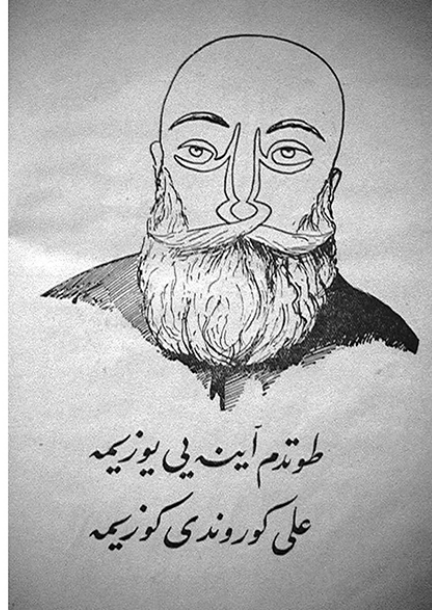 طوتدم آینه‌یی یوزیمه
علی كوروندی كوزیمه